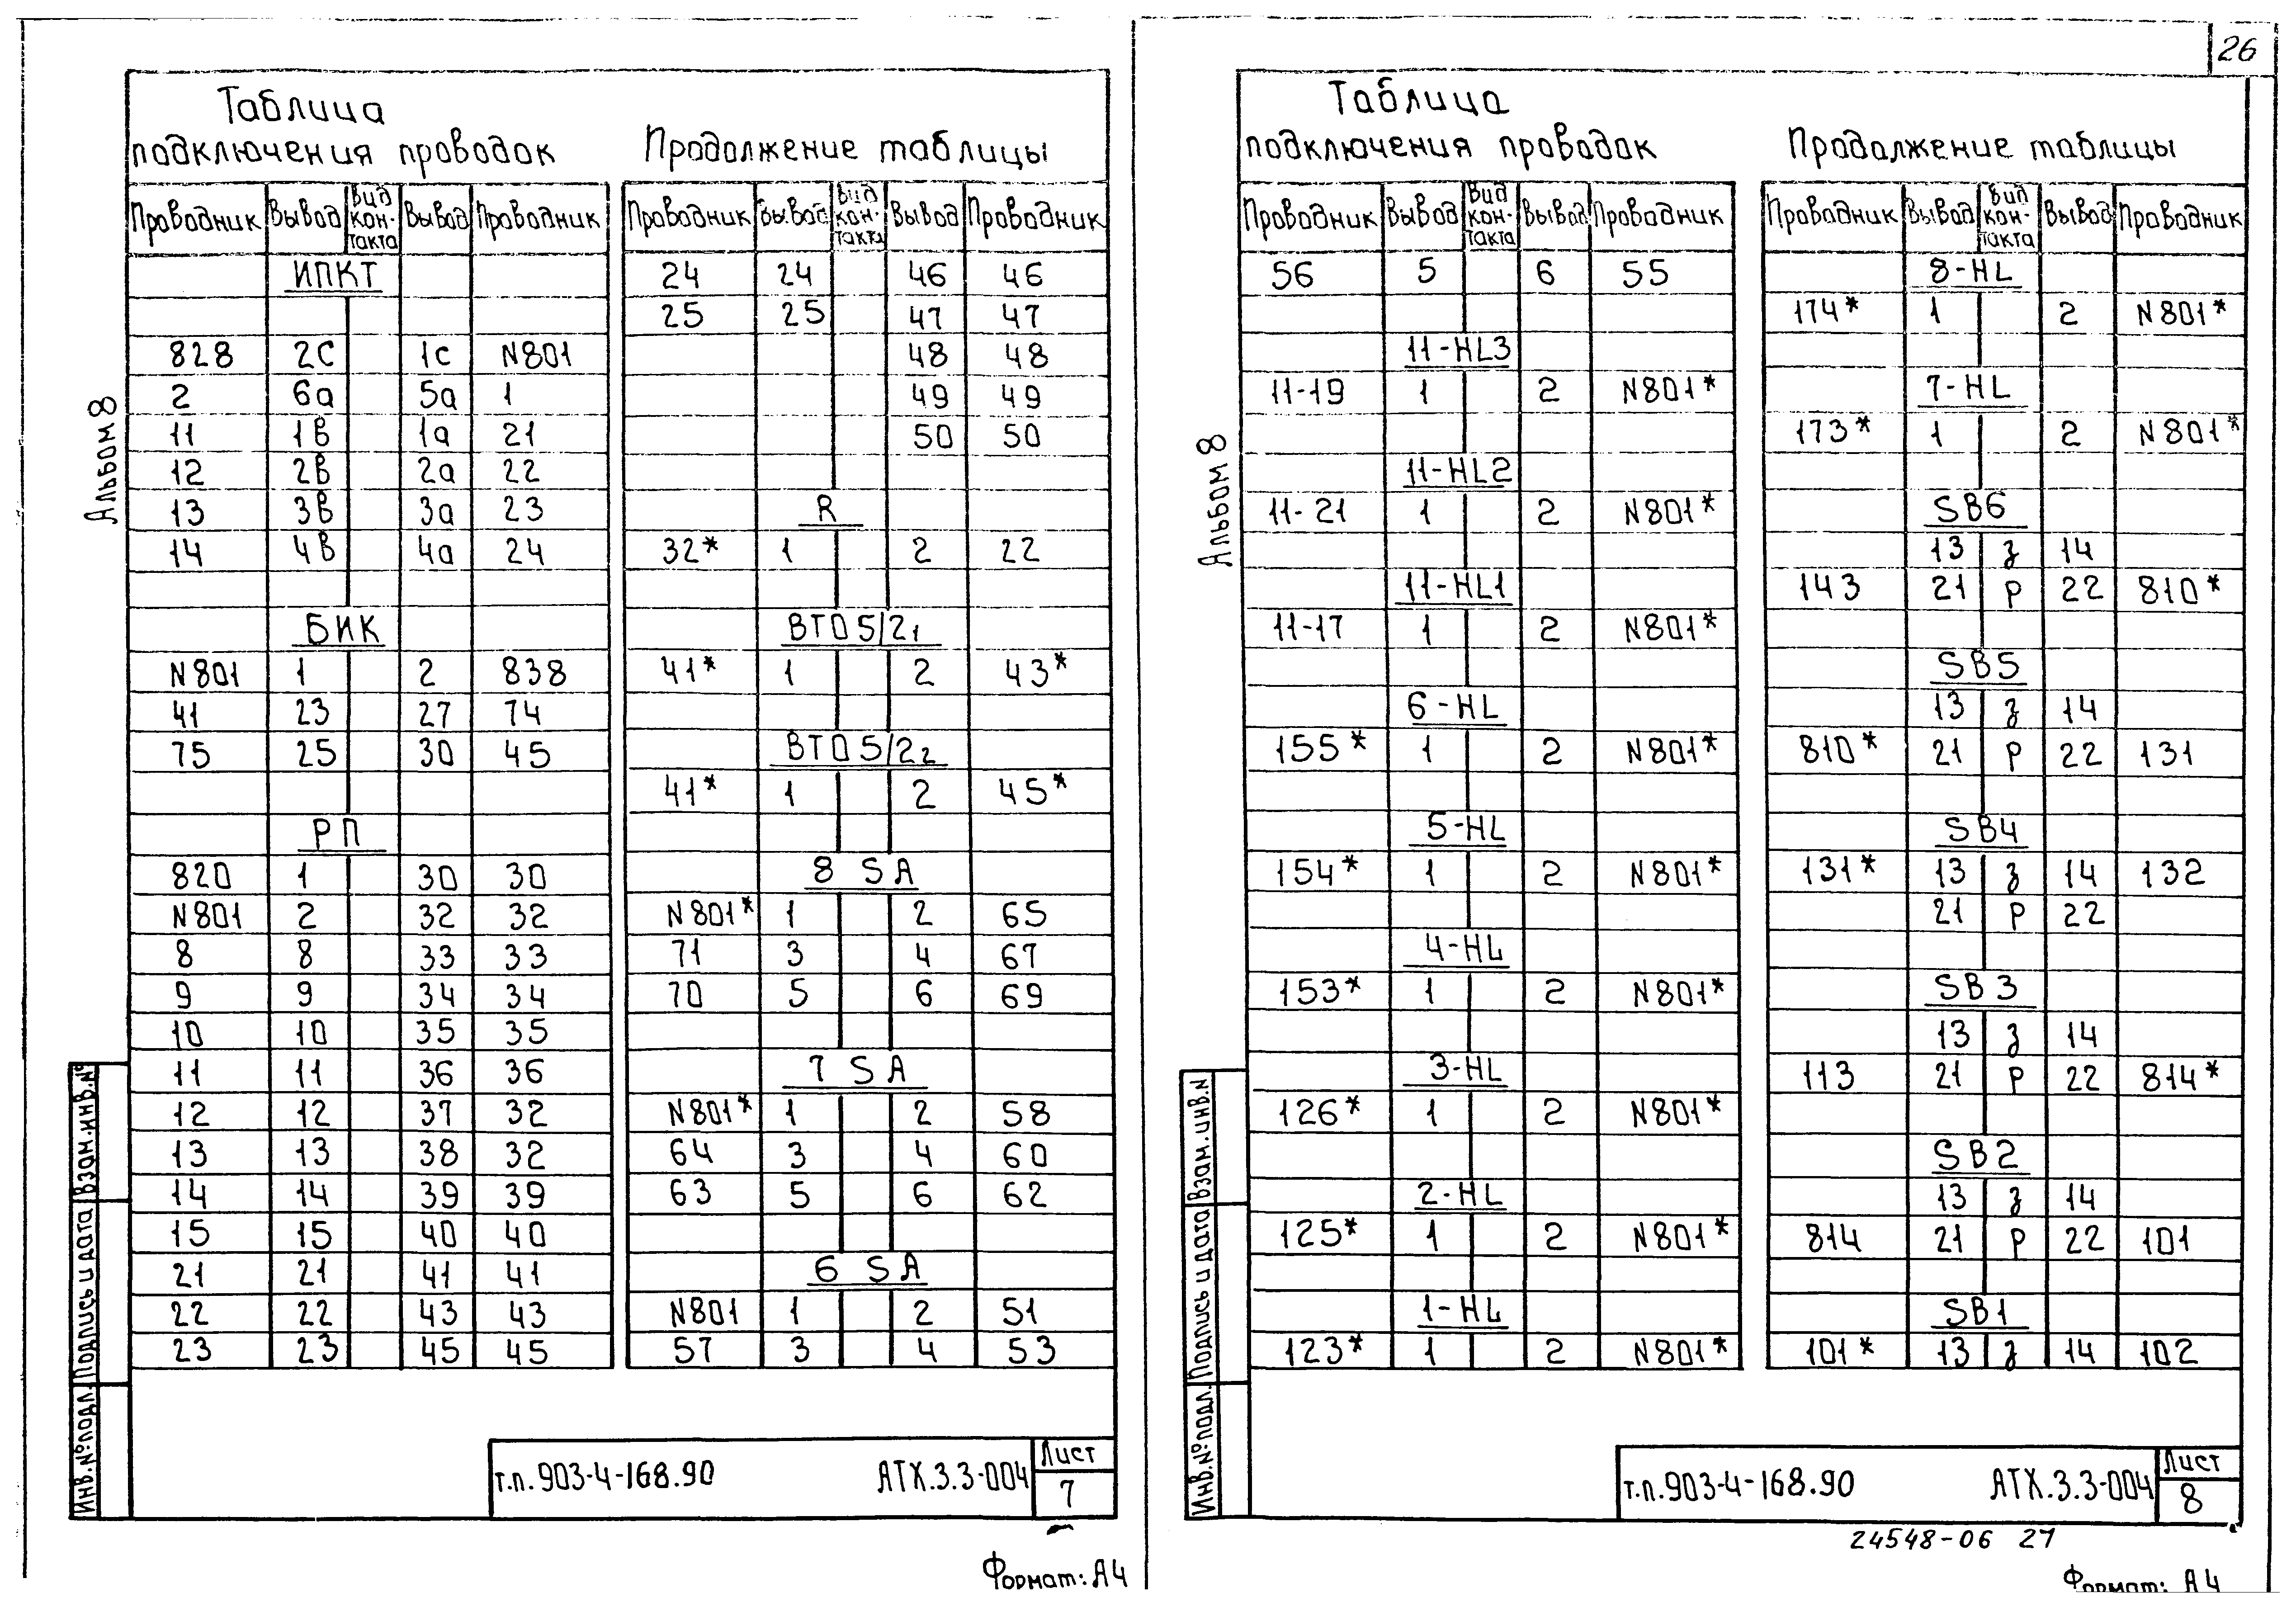 26
Альбом 8
Таблица
подключения проводок
Проводник Вывод Вид кон-такта Вывод Проводник
ИПКТ
828 2С 1с N801
2 6а 5а 1
11 1В 1а 21
12 2В 2а 22
13 3В 3а 23
14 4В 4а 24
БИК
N801 1 2 838
41 23 27 74
75 25 30 45
РП
820 1 30 30
N801 2 32 32
8 8 33 33
9 9 34 34
10 10 35 35
11 11 36 36
12 12 37 32
13 13 38 32
14 14 39 39
15 15 40 40
21 21 41 41
22 22 43 43
23 23 45 45
Продолжение таблицы
Проводник Вывод Вид кон-такта Вывод Проводник
24 24 46 46
25 25 47 47
48 48
49 49
50 50
R
32* 1 2 22
ВТО5/21
41* 1 2 43*
ВТО5/22
41* 1 2 45*
8 SA
N801* 1 2 65
71 3 4 67
70 5 6 69
7 SA
N801* 1 2 58
64 3 4 60
63 5 6 62
6 SA
N801 1 2 51
57 3 4 53
Инв.№подл. Подпись и дата Взам.инв.№
т.п.903-4-168.90 АТХ.3.3-004 Лист
7
Формат: А4
Альбом 8
Таблица
подключения проводок
Проводник Вывод Вид кон-такта Вывод Проводник
56 5 6 55
11-HL3
11-19 1 2 N801*
11-HL2
11-21 1 2 N801*
11-HL1
11-17 1 2 N801*
6-HL
155* 1 2 N801*
5-HL
154* 1 2 N801*
4-HL
153* 1 2 N801*
3-HL
126* 1 2 N801*
2-HL
125* 1 2 N801*
1-HL
123* 1 2 N801*
Продолжение таблицы
Проводник Вывод Вид кон-такта Вывод Проводник
8-HL
174* 1 2 N801*
7-HL
173* 1 2 N801*
SB6
13 з 14
143 21 р 22 810*
SB5
13 з 14
810* 21 р 22 131
SB4
131* 13 з 14 132
21 р 22
SB3
13 з 14
113 21 р 22 814*
SB2
13 з 14
814 21 р 22 101
SB1
101* 13 з 14 102
Инв.№подл. Подпись и дата Взам.инв.N
т.п.903-4-168.90 АТХ.3.3-004 Лист
8
24548-06 27
Формат: А4